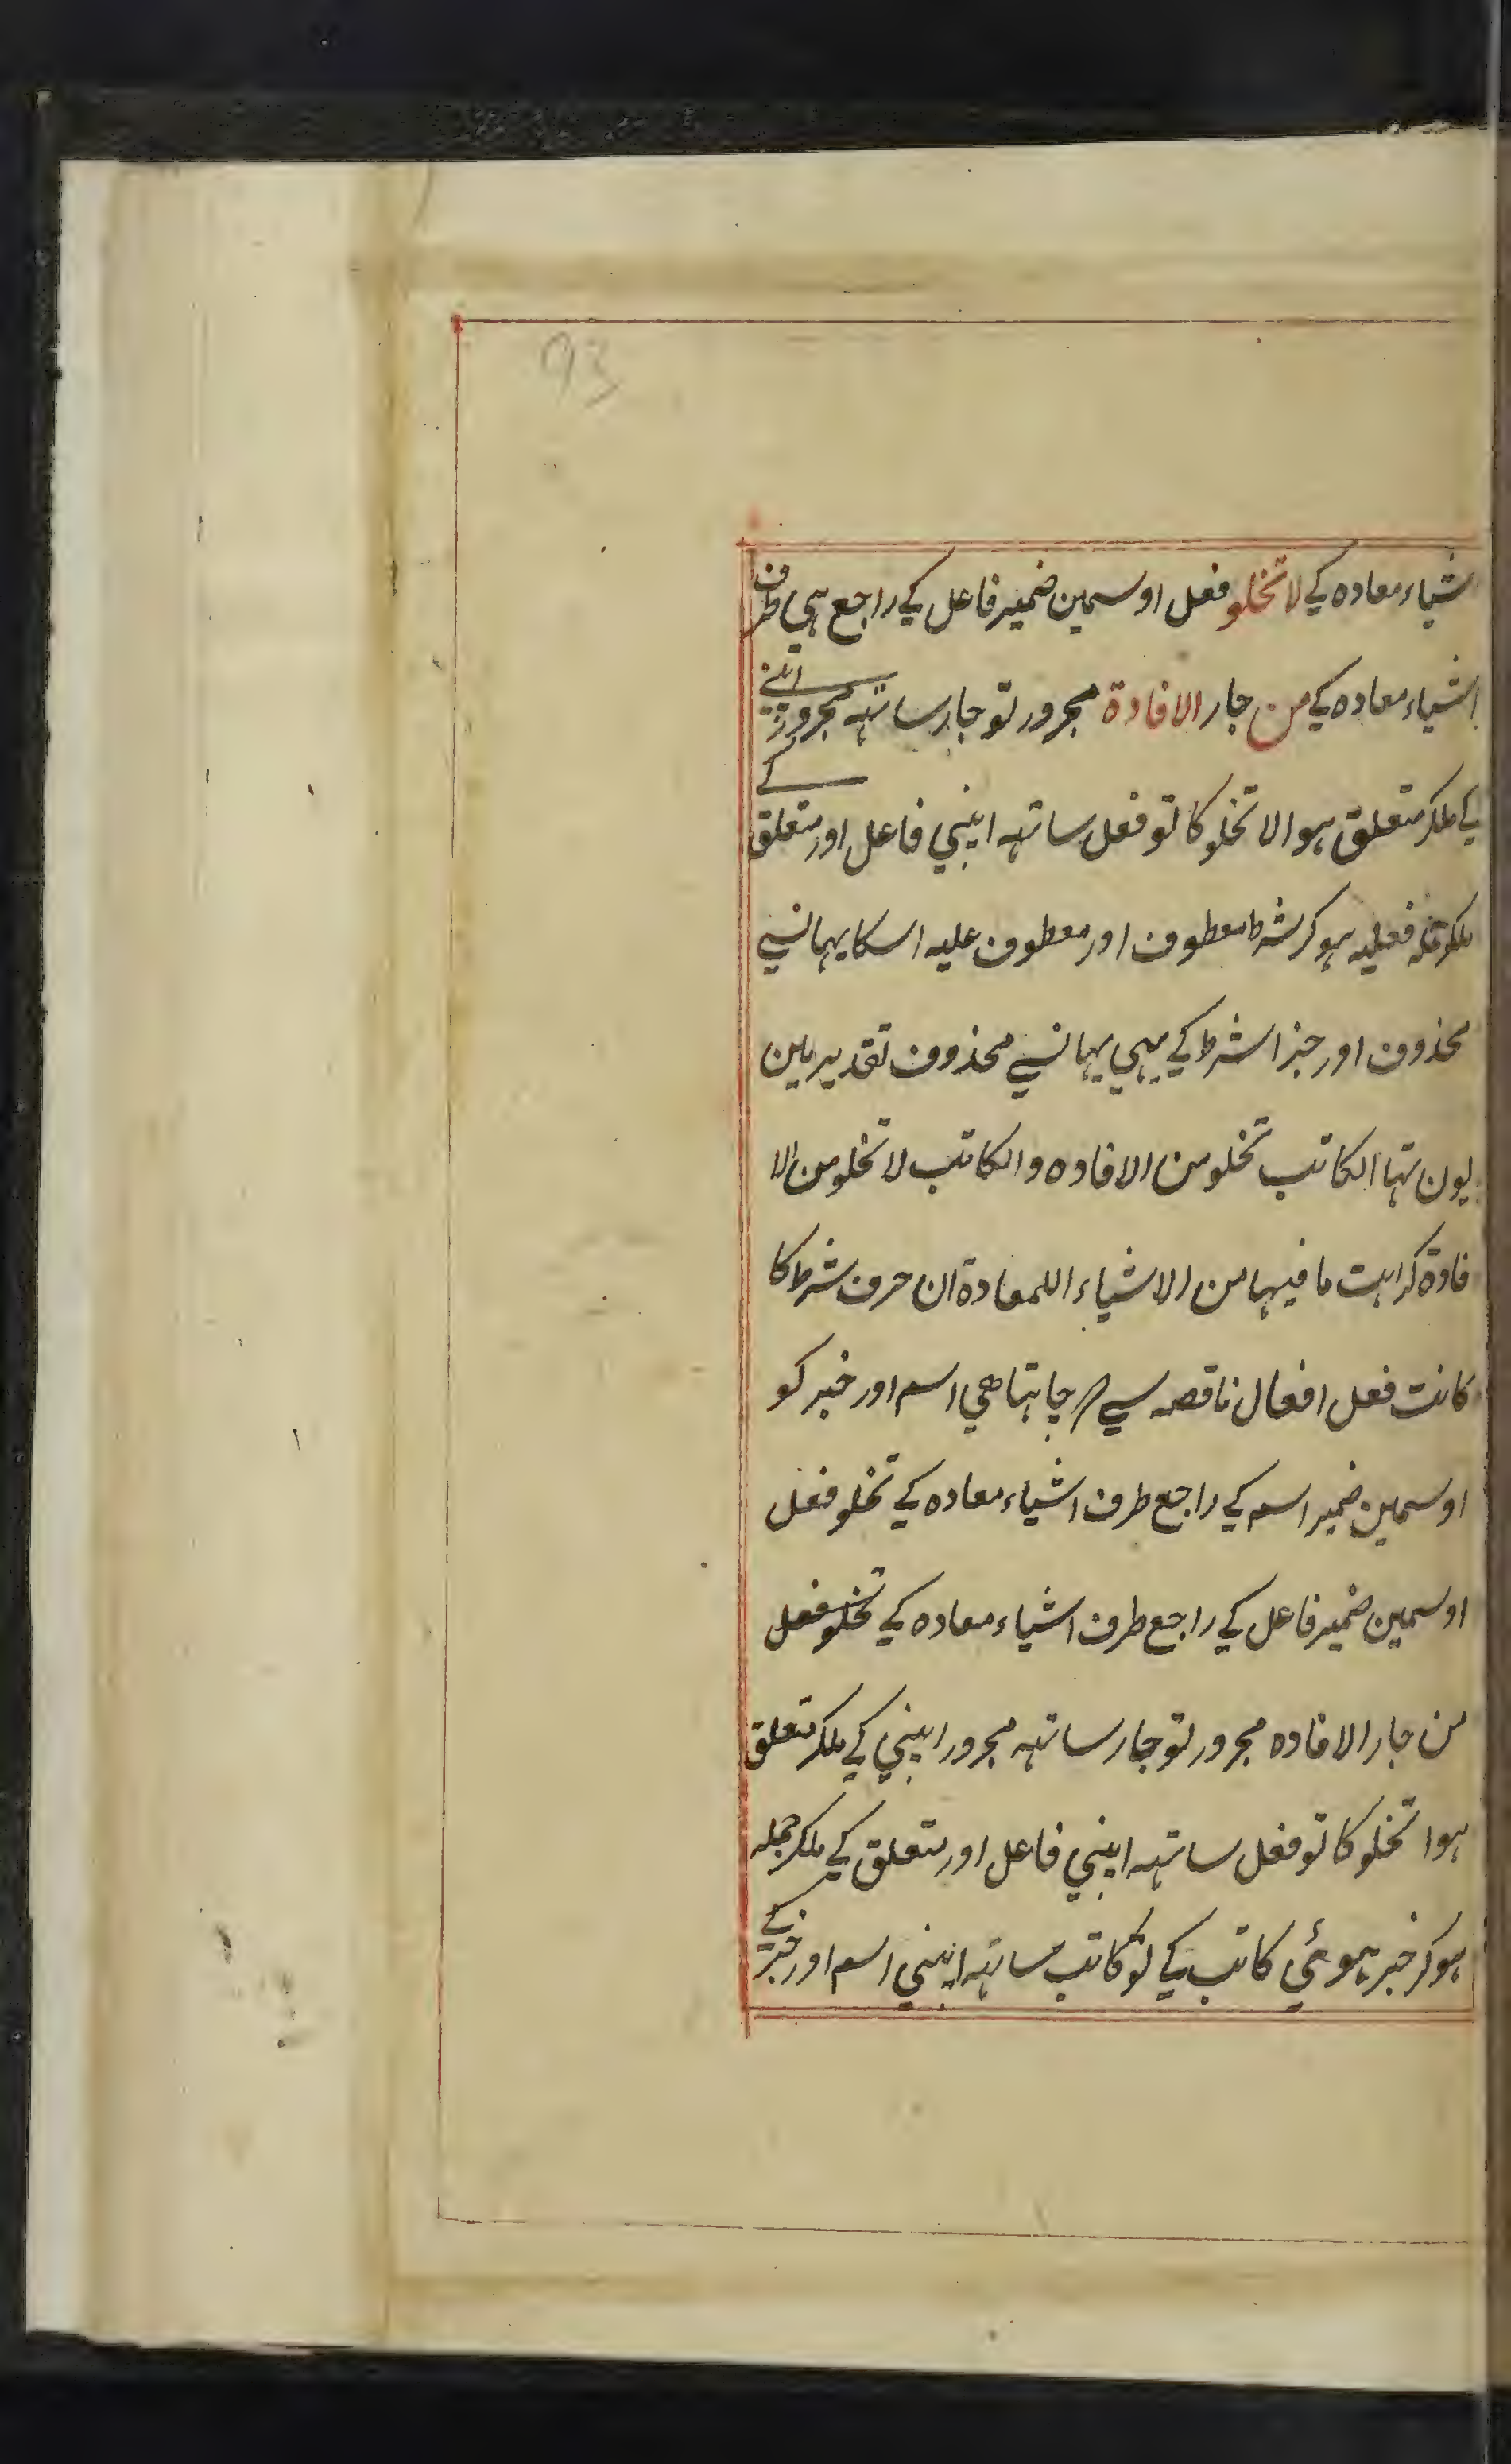 93
اشیاء معاده کے لا تخلو فعل اوسمین ضمیر فاعل کے راجع ہی طرف
اشیاء معاده کے من جار الافادة مجرور تو جار ساتہہ مجرور اپنے
کے ملکر متعلق ہوا لا تخلو کا تو فعل ساتہہ اپنی فاعل اور متعلق کے
ملکر جملہ فعلیہ ہوکر شرط معطوف اور معطوف علیہ اسکا یہانسے
محذوف اور جزا شرط کے بہی یہانسے محذوف تقدیر مین
یون تہا الکاتب تخلو من الافاده والکاتب لا تخلو من الا
فادة کراہت ما فیہا من الاشیاء اللمعادة ان حرف شرط کا
کانت فعل افعال ناقصہ سے چاہتا ھی اسم اور خبر کو
اوسمین ضمیر اسم کے راجع طرف اشیاء معاده کے تخلو فعل
اوسمین ضمیر فاعل کے راجع طرف اشیاء معاده کے تخلو فعل
من جار الافاده مجرور تو جار ساتہہ مجرور اپنی کے ملکر متعلق
ہوا تخلو کا تو فعل ساتہہ اپنی فاعل اور متعلق کے ملکر جملہ
ہوکر خبر ہوئی کاتب کے تو کاتب ساتہہ اپنی اسم اور خبر کے